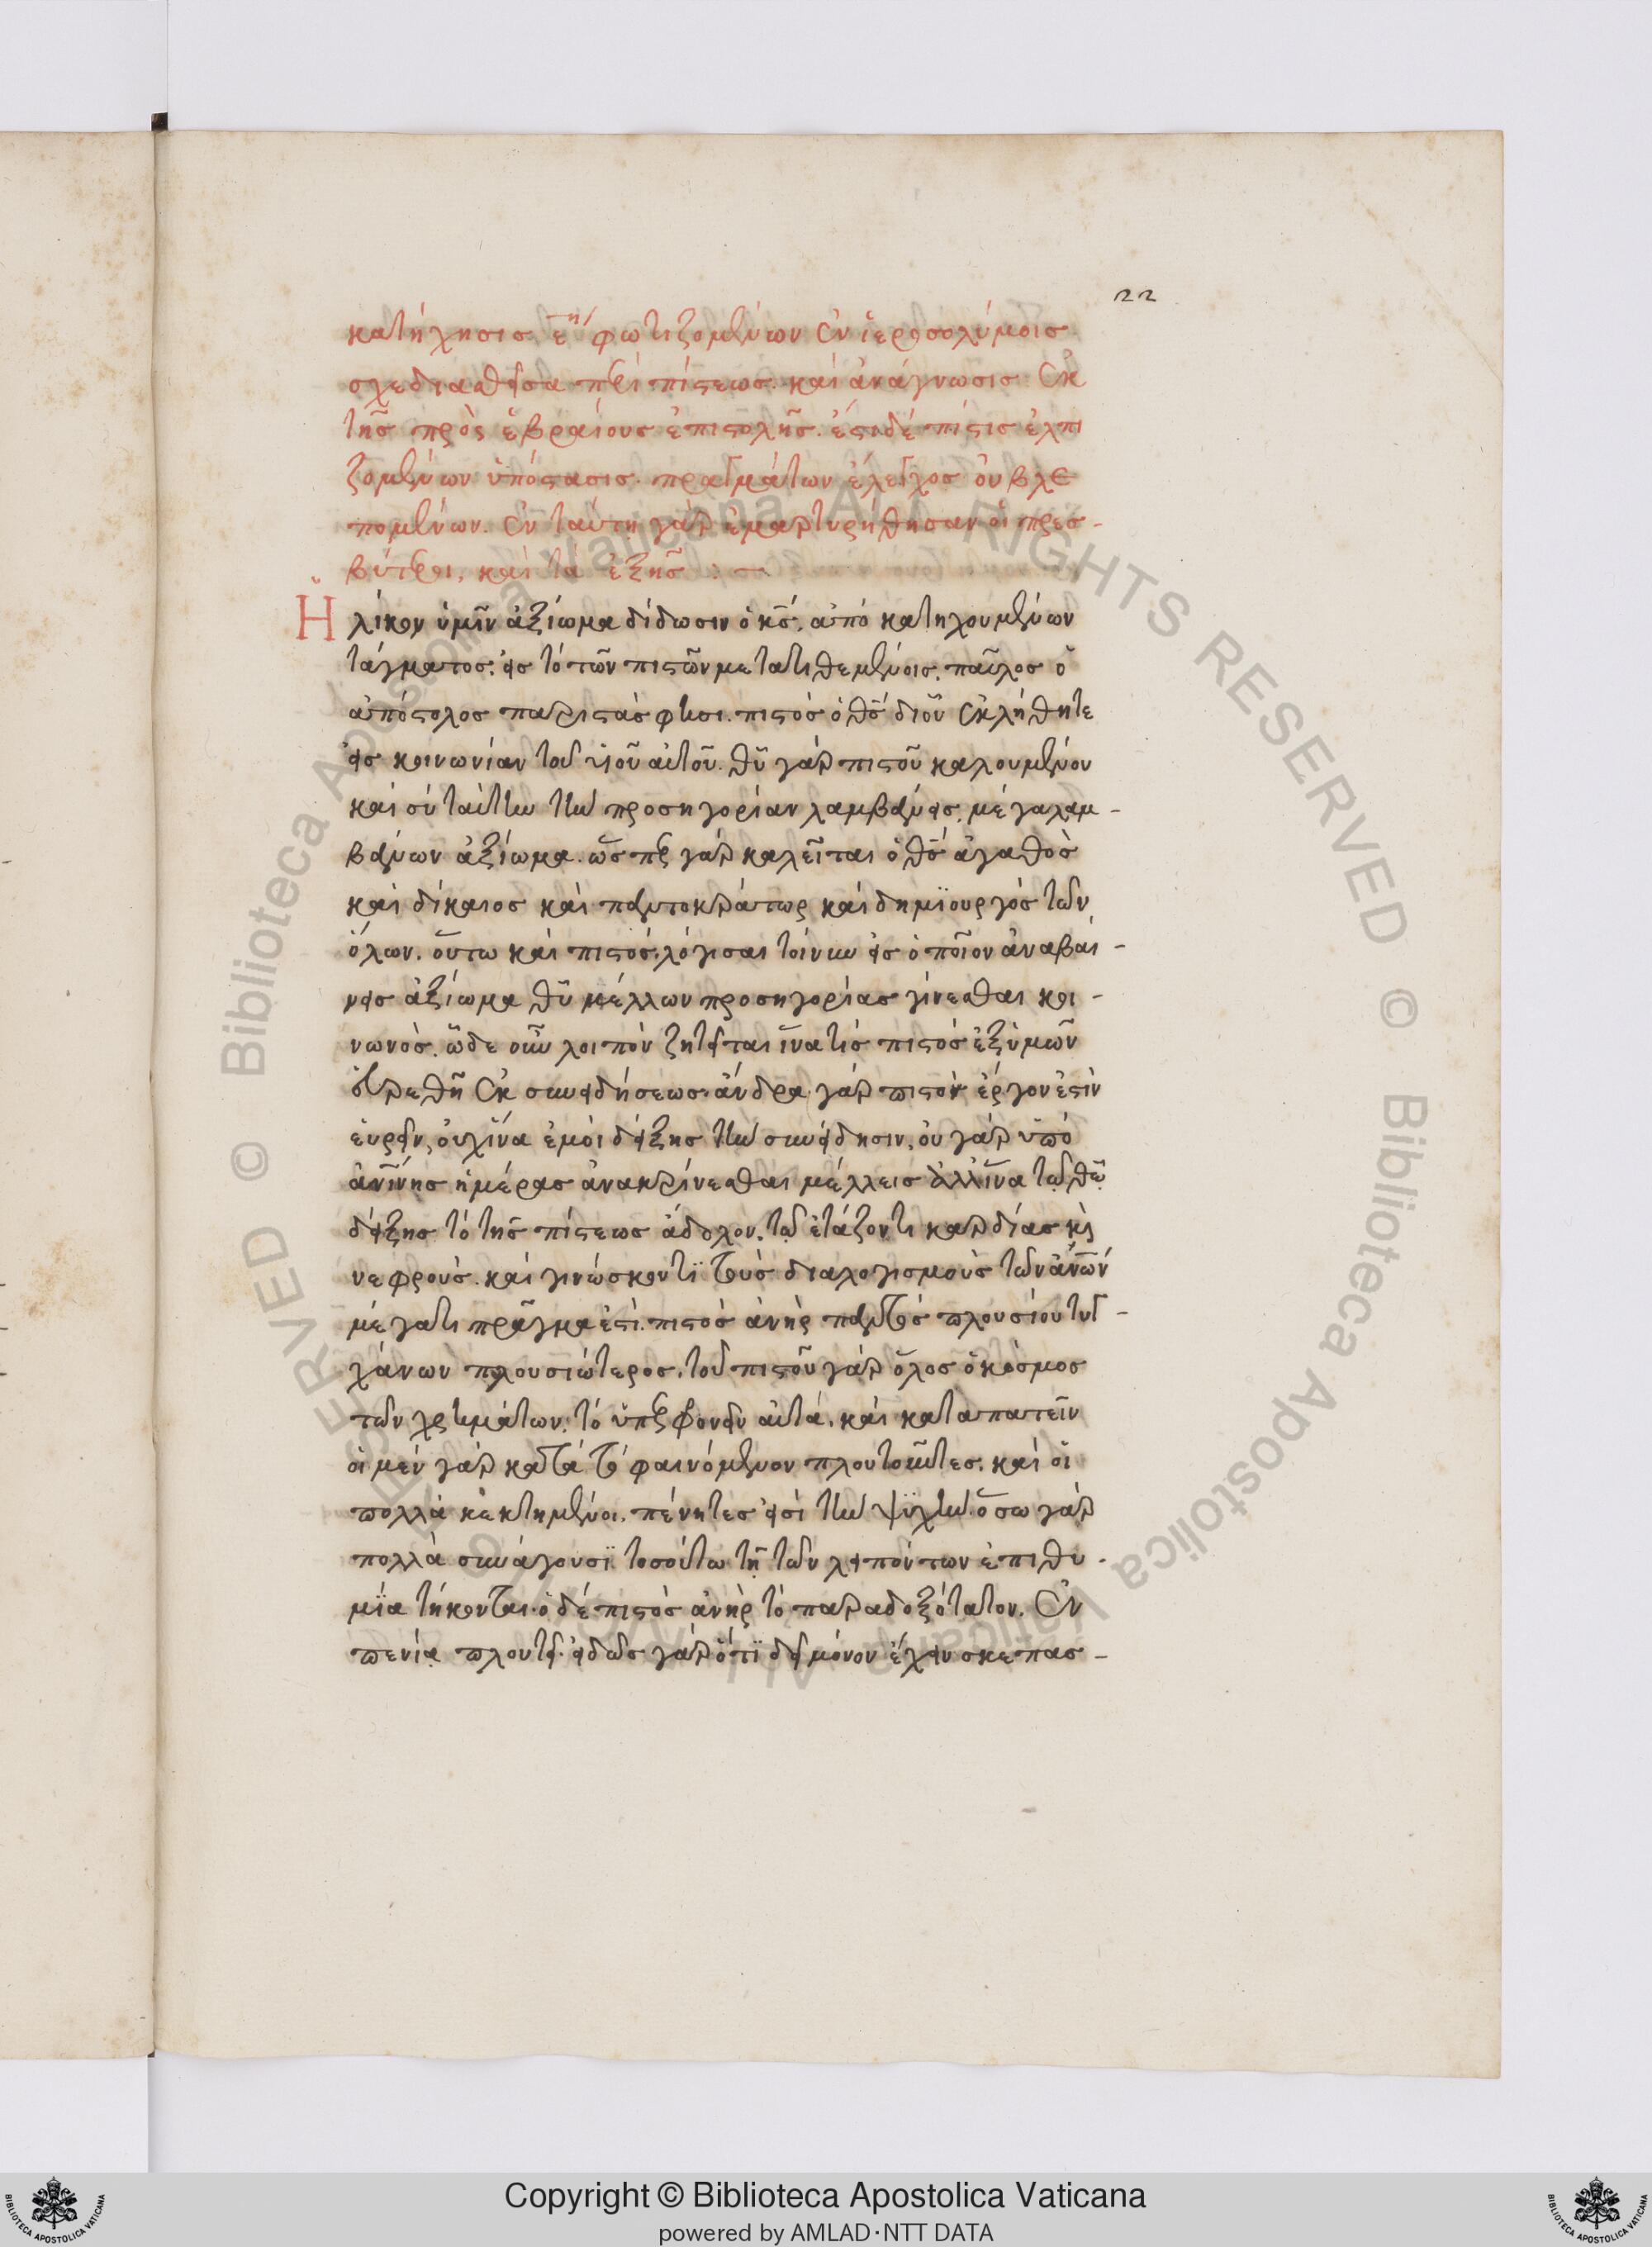 22
κατήχησις ε̅ η/ φωτιζομένων ἐν ἱεροσολύμοις
σχεδιασθεῖσα περὶ πίστεως. καὶ ἀνάγνωσις ἐκ
τῆς πρὸς ἑβραίους ἐπιστολῆς. ἔστι δὲ πίστις ἐλπι
ζομένων ὑπόστασις. πραγμάτων ἔλεγχος οὐ βλε
πομένων. ἐν ταύτη γὰρ ἐμαρτυρήθησαν οἱ πρεσ-
βύτεροι, καὶ τὰ ἑξῆς :—
Ηλίκον ὑμῖν ἀξίωμα δίδωσιν ὁ κς̅, ἀπὸ κατηχουμένων
τάγματος, εἰς τὸ τῶν πιστῶν μετατιθεμένοις, παῦλος ὁ
ἀπόστολος παριστάς φησι. πιστὸς ὁ θς̅ δι οὗ ἐκλήθητε
εἰς κοινωνίαν τοῦ υἱοῦ αὐτοῦ. θυ̅ γὰρ πιστοῦ καλουμένου
καὶ σὺ ταύτην τὴν προσηγορίαν λαμβάνεις, μέγα λαμ-
βάνων ἀξίωμα. ὥσπερ γὰρ καλεῖται ὁ θς̅ ἀγαθὸς
καὶ δίκαιος καὶ παντοκράτωρ καὶ δημϊουργὸς τῶν
ὅλων. οὕτω καὶ πιστός. λόγισαι τοίνυν εἰς ὁποῖον ἀναβαί-
νεις ἀξίωμα θυ̅ μέλλων προσηγορίας γίνεσθαι κοι-
νωνὸς. ὧδε οὖν λοιπὸν ζητεῖται ἵνα τὶς πιστὸς ἐξ ὑμῶν
εὑρεθῆ ἐκ συνειδήσεως. ἄνδρα γὰρ πιστὸν ἔργον ἐστὶν
εὑρεῖν, οὐχ ἵνα ἐμοὶ δείξης τὴν συνείδησιν, οὐ γὰρ ὑπὸ
ἀνίνης ἡμέρας ἀνακρίνεσθαι μέλλεις ἀλλ ἵνα τῷ θῷ
δείξης τὸ τῆς πίστεως ἄδολον. τῷ ἐτάζοντι καρδίας κὶ
νεφρούς. καὶ γινώσκοντϊ τοὺς διαλογισμοὺς τῶν ἀνων̅
μέγα τι πρᾶγμα ἐστὶ. πιστὸς ἀνὴρ παντὸς πλουσίου τυγ-
χάνων πλουσιώτερος. τοῦ πιστοῦ γὰρ ὅλος ὁ κόσμος
τῶν χρημάτων. τὸ ὑπερφονεῖν αὐτά. καὶ καταπατεῖν
οἱ μὲν γὰρ κατὰ τὸ φαινόμενον πλουτοῦντες. καὶ οἱ
πολλὰ κεκτημένοι. πένητες εἰσὶ τὴν ψϋχήν. ὅσω γὰρ
πολλὰ συνάγουσϊ. τοσούτω τῇ τῶν λειπόντων ἐπιθυ-
μία τήκονται. ὁ δὲ πιστὸς ἀνὴρ τὸ παραδοξότατον. ἐν
πενίᾳ πλουτεῖ. εἰδὼς γὰρ ὅτϊ δεῖ μόνον ἔχειν σκεπασ-
Copyright © Biblioteca Apostolica Vaticana
powered by AMLAD·NTT DATA